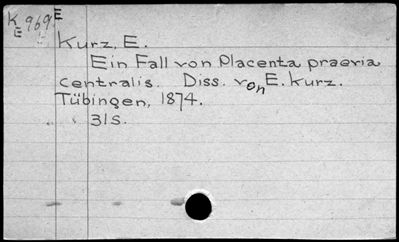 K 969 E
E
Kurz, E.
Ein Fall von Placenta praevia
centralis. Diss. von E. Kurz.
Tübingen, 1874.
31S.